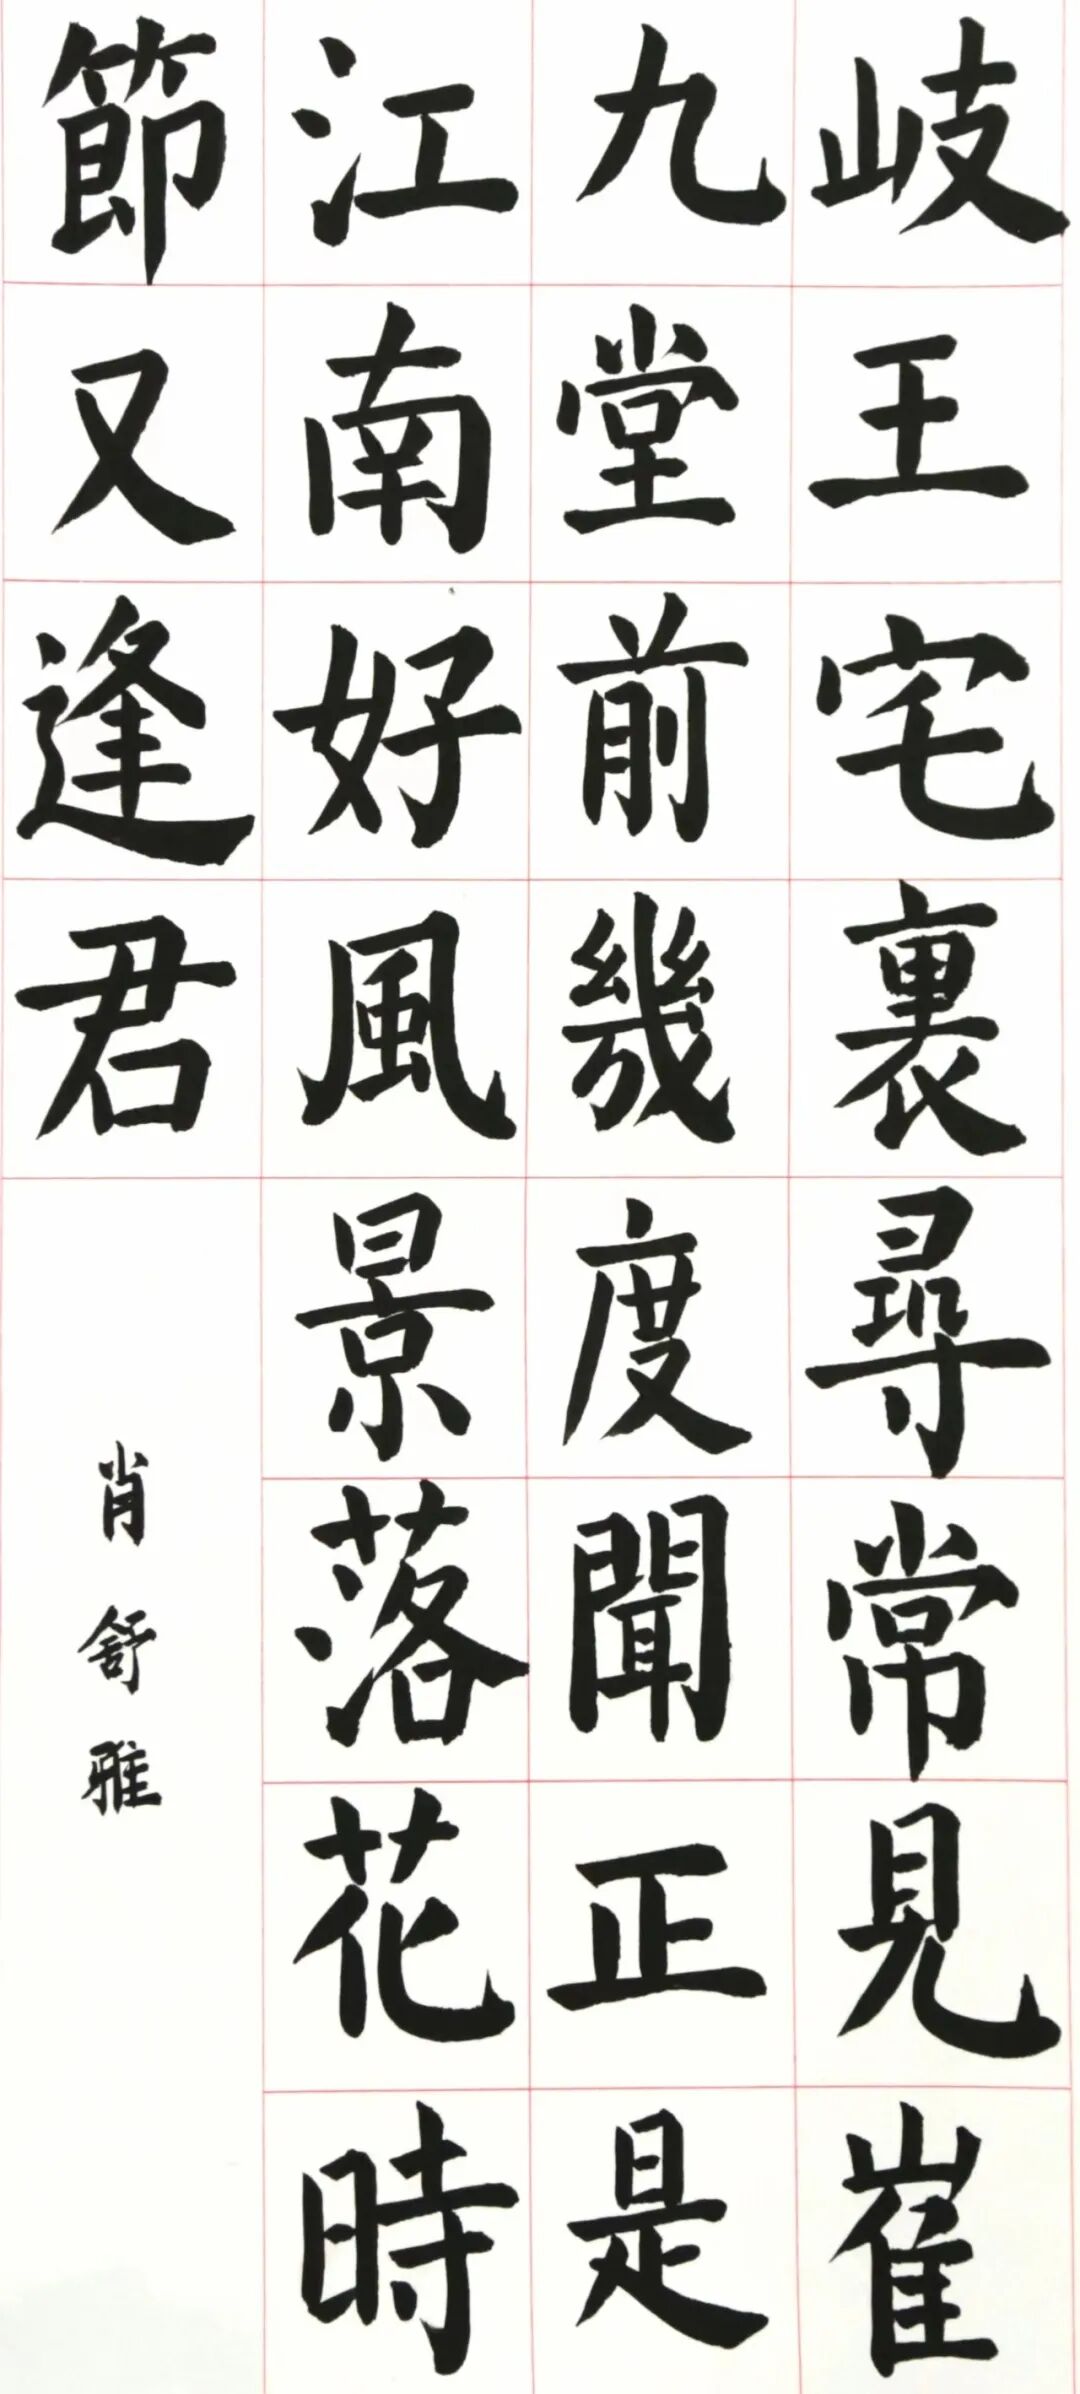 岐王宅裏尋常見崔
九堂前幾度聞正是
江南好風景落花時
節又逢君
肖舒雅